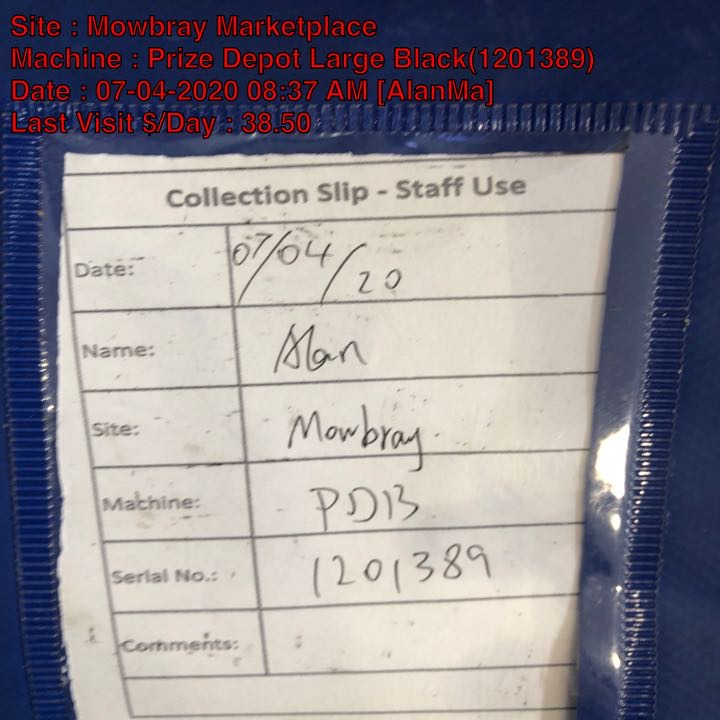 Site : Mowbray Marketplace
Machine : Prize Depot Large Black(1201389)
Date : 07-04-2020 08:37 AM [AlanMa]
Last Visit $/Day : 38.50
Collection Slip - Staff Use
Date: 07/04/20
Name: Alan
Site: Mowbray.
Machine: PDB
Serial No.: 1201389
Comments: